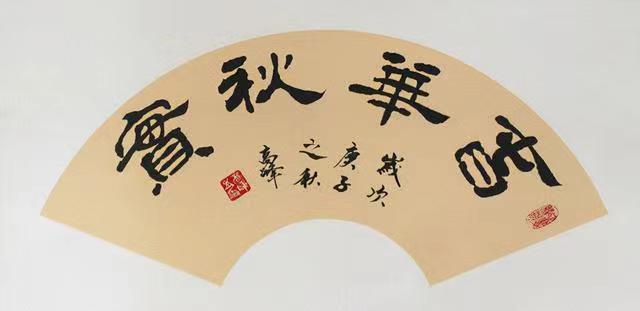 春華秋實
歲次
庚子
之秋
高峰